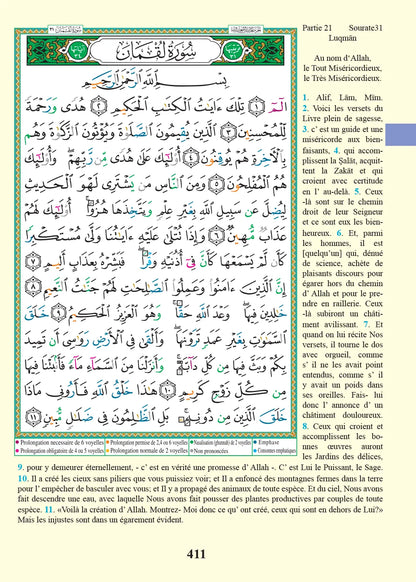 سُورَةُ لُقْمَان
بِسْمِ ٱللَّهِ ٱلرَّحْمَٰنِ ٱلرَّحِيمِ
الٓمٓ ١ تِلْكَ ءَايَٰتُ ٱلْكِتَٰبِ ٱلْحَكِيمِ ٢ هُدًى وَرَحْمَةً
لِّلْمُحْسِنِينَ ٣ ٱلَّذِينَ يُقِيمُونَ ٱلصَّلَوٰةَ وَيُؤْتُونَ ٱلزَّكَوٰةَ وَهُم
بِٱلْءَاخِرَةِ هُمْ يُوقِنُونَ ٤ أُو۟لَٰٓئِكَ عَلَىٰ هُدًى مِّن رَّبِّهِمْ ۖ وَأُو۟لَٰٓئِكَ
هُمُ ٱلْمُفْلِحُونَ ٥ وَمِنَ ٱلنَّاسِ مَن يَشْتَرِى لَهْوَ ٱلْحَدِيثِ
لِيُضِلَّ عَن سَبِيلِ ٱللَّهِ بِغَيْرِ عِلْمٍ وَيَتَّخِذَهَا هُزُوًا ۚ أُو۟لَٰٓئِكَ لَهُمْ
عَذَابٌ مُّهِينٌ ٦ وَإِذَا تُتْلَىٰ عَلَيْهِ ءَايَٰتُنَا وَلَّىٰ مُسْتَكْبِرًا
كَأَن لَّمْ يَسْمَعْهَا كَأَنَّ فِىٓ أُذُنَيْهِ وَقْرًا ۖ فَبَشِّرْهُ بِعَذَابٍ أَلِيمٍ ٧
إِنَّ ٱلَّذِينَ ءَامَنُوا۟ وَعَمِلُوا۟ ٱلصَّٰلِحَٰتِ لَهُمْ جَنَّٰتُ ٱلنَّعِيمِ ٨
خَٰلِدِينَ فِيهَا ۖ وَعْدَ ٱللَّهِ حَقًّا ۚ وَهُوَ ٱلْعَزِيزُ ٱلْحَكِيمُ ٩ خَلَقَ
ٱلسَّمَٰوَٰتِ بِغَيْرِ عَمَدٍ تَرَوْنَهَا ۖ وَأَلْقَىٰ فِى ٱلْأَرْضِ رَوَٰسِىَ أَن تَمِيدَ
بِكُمْ وَبَثَّ فِيهَا مِن كُلِّ دَآبَّةٍ ۚ وَأَنزَلْنَا مِنَ ٱلسَّمَآءِ مَآءً فَأَنۢبَتْنَا فِيهَا
مِن كُلِّ زَوْجٍ كَرِيمٍ ١٠ هَٰذَا خَلْقُ ٱللَّهِ فَأَرُونِى مَاذَا
خَلَقَ ٱلَّذِينَ مِن دُونِهِۦ ۚ بَلِ ٱلظَّٰلِمُونَ فِى ضَلَٰلٍ مُّبِينٍ ١١
Prolongation nécessaire de 6 voyelles Prolongation permise de 2,4 ou 6 voyelles Nasalisation (ghunnah) à 2 voyelles Emphase
Prolongation obligatoire de 4 ou 5 voyelles Prolongation normale de 2 voyelles Non prononcées Consonnes emphatiques
Partie 21 Sourate31
Luqmān
Au nom d'Allah,
le Tout Miséricordieux,
le Très Miséricordieux.
1. Alif, Lām, Mīm.
2. Voici les versets du
Livre plein de sagesse,
3. c' est un guide et une
miséricorde aux bien-
faisants, 4. qui accom-
plissent la Ṣalāt, acquit-
tent la Zakāt et qui
croient avec certitude
en l' au-delà. 5. Ceux
-là sont sur le chemin
droit de leur Seigneur
et ce sont eux les bien-
heureux. 6. Et, parmi
les hommes, il est
[quelqu'un] qui, dénué
de science, achète de
plaisants discours pour
égarer hors du chemin
d' Allah et pour le pre-
ndre en raillerie. Ceux
-là subiront un châti-
ment avilissant. 7. Et
quand on lui récite Nos
versets, il tourne le dos
avec orgueil, comme
s' il ne les avait point
entendus, comme s' il
y avait un poids dans
ses oreilles. Fais- lui
donc l' annonce d' un
châtiment douloureux.
8. Ceux qui croient et
accomplissent les bo-
nnes œuvres auront
les Jardins des délices,
9. pour y demeurer éternellement, - c' est en vérité une promesse d' Allah -. C' est Lui le Puissant, le Sage.
10. Il a créé les cieux sans piliers que vous puissiez voir; et Il a enfoncé des montagnes fermes dans la terre
pour l' empêcher de basculer avec vous; et Il y a propagé des animaux de toute espèce. Et du ciel, Nous avons
fait descendre une eau, avec laquelle Nous avons fait pousser des plantes productives par couples de toute
espèce. 11. «Voilà la création d' Allah. Montrez- Moi donc ce qu' ont créé, ceux qui sont en dehors de Lui?»
Mais les injustes sont dans un égarement évident.
411